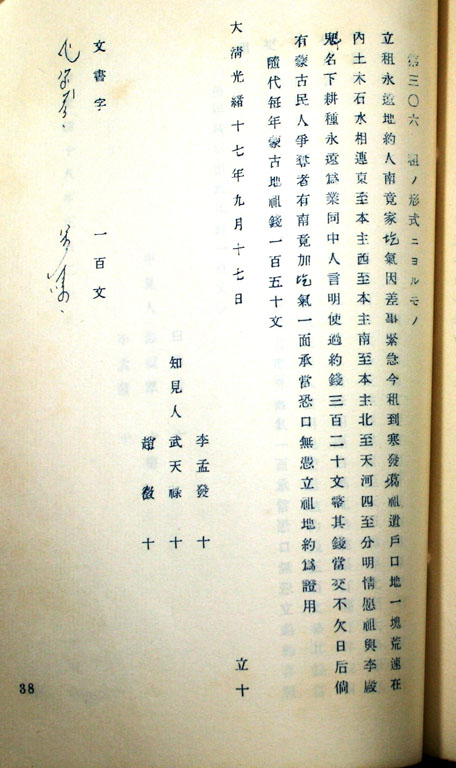 第三〇六 租ノ形式ニヨルモノ
立租永遠地約人南竟家圪氣因差事緊急今租到寒發蔼祖遺戶口地一塊荒連在
內土木石水相連東至本主西至本主南至本主北至天河四至分明情愿租與李殿
魁名下耕種永遠爲業同中人言明使過約錢三百二十文幣其錢當交不欠日后倘
有蒙古民人爭奪者有南竟加圪氣一面承當恐口無憑立祖地約爲證用
隨代每年蒙古地祖錢一百五十文
大淸光緒十七年九月十七日
立十
李孟發 十
知見人 武天祿 十
趙 十
文書字 一百文
38